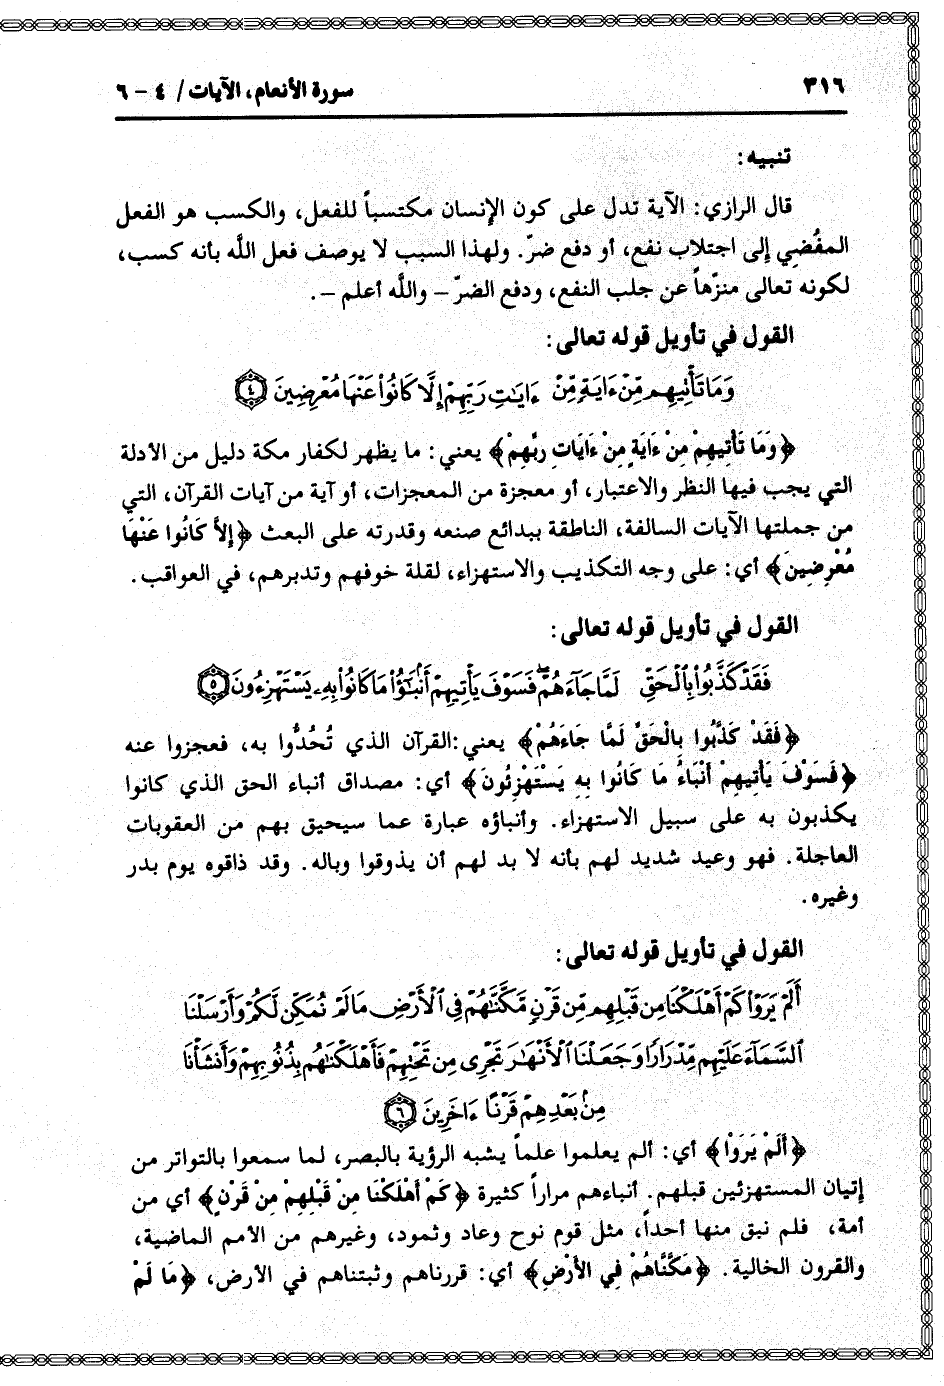 ٣١٦
سورة الأنعام، الآيات / ٤ - ٦
تنبيه:
قال الرازي: الآية تدل على كون الإنسان مكتسباً للفعل، والكسب هو الفعل
المفْضِي إلى اجتلاب نفع، أو دفع ضرّ. ولهذا السبب لا يوصف فعل اللَّه بأنه كسب،
لكونه تعالى منزّهاً عن جلب النفع، ودفع الضرّ – واللَّه أعلم –.
القول في تأويل قوله تعالى:
وَمَا تَأْتِيهِم مِّنْ ءَايَةٍ مِّنْ ءَايَٰتِ رَبِّهِمْ إِلَّا كَانُوا۟ عَنْهَا مُعْرِضِينَ ٤
﴿وَمَا تَأْتِيهِمْ مِنْ ءَايَةٍ مِنْ ءَايَاتِ رَبِّهِمْ﴾ يعني: ما يظهر لكفار مكة دليل من الأدلة
التي يجب فيها النظر والاعتبار، أو معجزة من المعجزات، أو آية من آيات القرآن، التي
من جملتها الآيات السالفة، الناطقة ببدائع صنعه وقدرته على البعث ﴿إلاَّ كَانُوا عَنْهَا
مُعْرِضِينَ﴾ أي: على وجه التكذيب والاستهزاء، لقلة خوفهم وتدبرهم، في العواقب.
القول في تأويل قوله تعالى:
فَقَدْ كَذَّبُوا۟ بِٱلْحَقِّ لَمَّا جَآءَهُمْ ۖ فَسَوْفَ يَأْتِيهِمْ أَنۢبَٰٓؤُا۟ مَا كَانُوا۟ بِهِۦ يَسْتَهْزِءُونَ ٥
﴿فَقَدْ كَذَّبُوا بِالْحَقِّ لَمَّا جَاءَهُمْ﴾ يعني: القرآن الذي تُحُدُّوا به، فعجزوا عنه
﴿فَسَوْفَ يَأتيهِمْ أَنْبَاءُ مَا كَانُوا بِهِ يَسْتَهْزِئُونَ﴾ أي: مصداق أنباء الحق الذي كانوا
يكذبون به على سبيل الاستهزاء. وأنباؤه عبارة عما سيحيق بهم من العقوبات
العاجلة. فهو وعيد شديد لهم بأنه لا بد لهم أن يذوقوا وباله. وقد ذاقوه يوم بدر
وغيره.
القول في تأويل قوله تعالى:
أَلَمْ يَرَوْا۟ كَمْ أَهْلَكْنَا مِن قَبْلِهِم مِّن قَرْنٍ مَّكَّنَّٰهُمْ فِى ٱلْأَرْضِ مَا لَمْ نُمَكِّن لَّكُمْ وَأَرْسَلْنَا
ٱلسَّمَآءَ عَلَيْهِم مِّدْرَارًا وَجَعَلْنَا ٱلْأَنْهَٰرَ تَجْرِى مِن تَحْتِهِمْ فَأَهْلَكْنَٰهُم بِذُنُوبِهِمْ وَأَنشَأْنَا
مِنۢ بَعْدِهِمْ قَرْنًا ءَاخَرِينَ ٦
﴿أَلَمْ يَرَوْا﴾ أي: ألم يعلموا علماً يشبه الرؤية بالبصر، لما سمعوا بالتواتر من
إتيان المستهزئين قبلهم. أنباءهم مراراً كثيرة ﴿كَمْ أَهْلَكْنَا مِنْ قَبْلِهِمْ مِنْ قَرْنٍ﴾ أي من
أمة، فلم نبق منها أحداً، مثل قوم نوح وعاد وثمود، وغيرهم من الأمم الماضية،
والقرون الخالية. ﴿مَكَّنَّاهُمْ فِي الأَرْضِ﴾ أي: قررناهم وثبتناهم في الأرض، ﴿مَا لَمْ